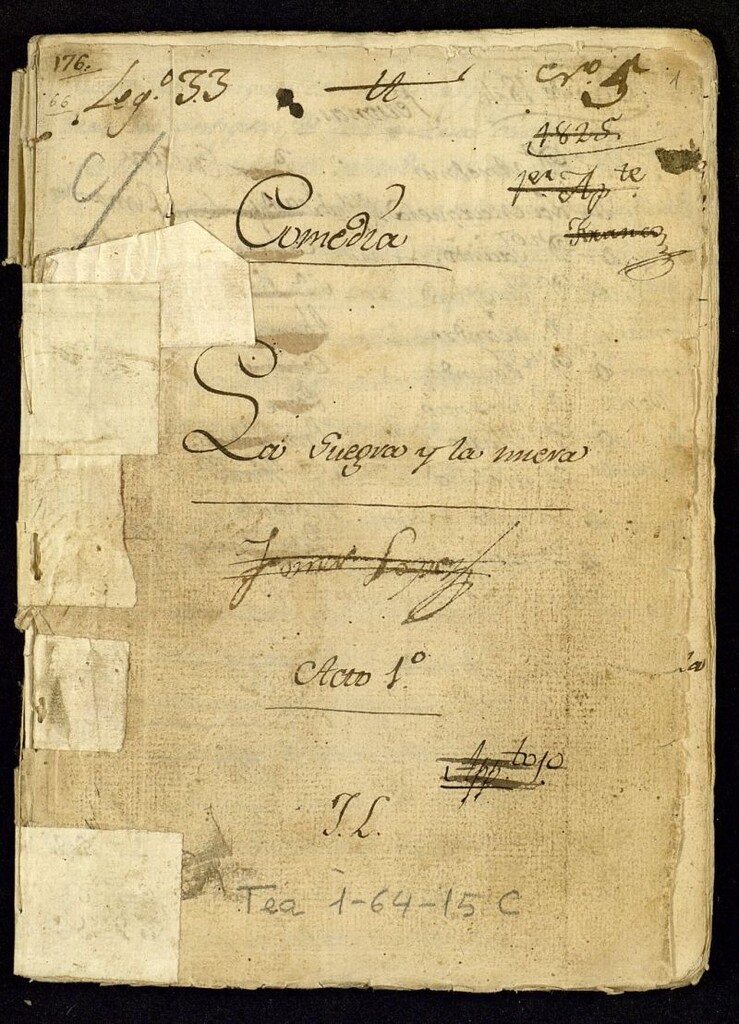 176.
66
Leg.º 33
1
1825
1er Ap te
Franco
Comedia
La Suegra y la nuera
Lopez
Acto 1.º
App. to
J. L.
Tea 1-64-15 C